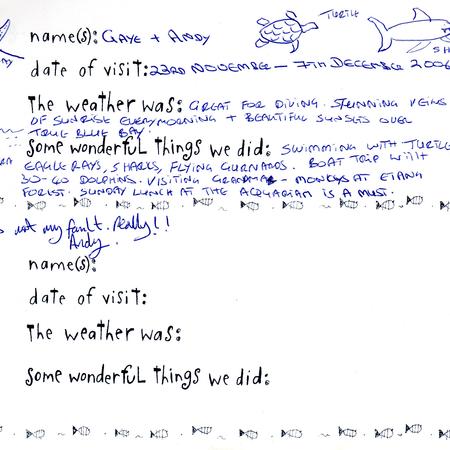 TURTLE
name(s): GAYE + ANDY
date of visit: 23RD NOVEMBER - 7TH DECEMBER 2006
SH
The weather was: GREAT FOR DIVING. STUNNING VEIWS
OF SUNRISE EVERYMORNING + BEAUTIFUL SUNSETS OVER
TRUE BLUE BAY.
Some wonderful things we did: SWIMMING WITH TURTLE
EAGLE RAYS, SHARKS, FLYING GURNARDS. BOAT TRIP WITH
30-60 DOLPHINS. VISITING GRANDMA - MONKEYS AT ETANG
FOREST. SUNDAY LUNCH AT THE AQUARIAN IS A MUST.
not my fault. really!!
Andy.
name(s):
date of visit:
The weather was:
Some wonderful things we did: